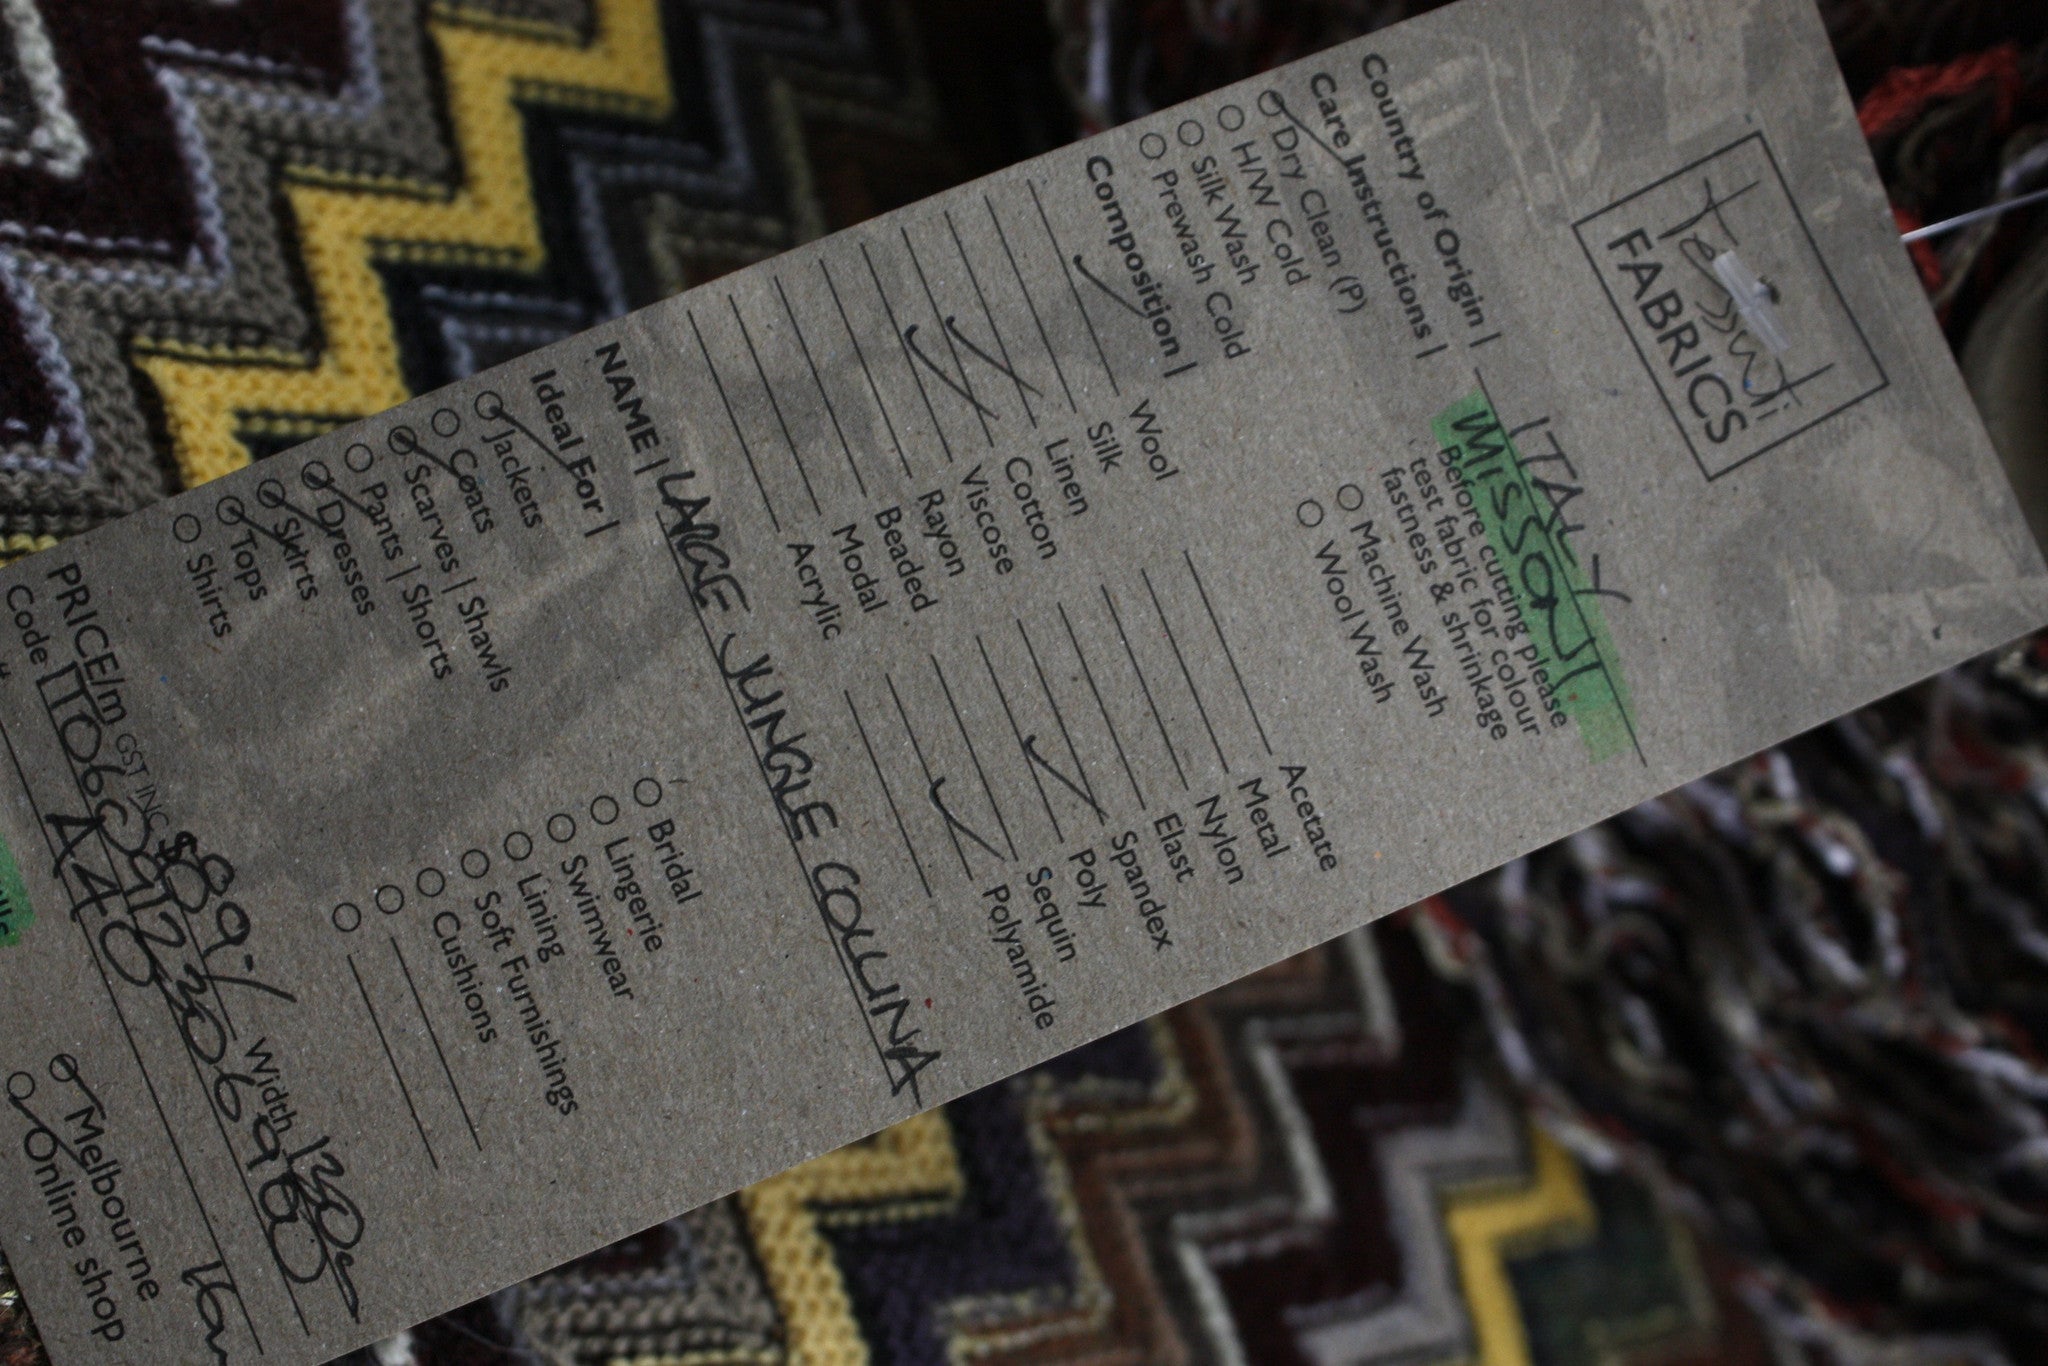 Tessuti
FABRICS
Country of Origin | ITALY
MISSONI
Care Instructions |
Before cutting please
test fabric for colour
fastness & shrinkage
Dry Clean (P)
H/W Cold
Silk Wash
Prewash Cold
Machine Wash
Wool Wash
Composition |
Wool
Silk
Linen
Cotton
Viscose
Rayon
Beaded
Modal
Acrylic
Acetate
Metal
Nylon
Elast
Spandex
Poly
Sequin
Polyamide
NAME | LARGE JUNGLE COLLINA
Ideal For |
Jackets
Coats
Scarves | Shawls
Pants | Shorts
Dresses
Skirts
Tops
Shirts
Bridal
Lingerie
Swimwear
Lining
Soft Furnishings
Cushions
PRICE/m GST INC $89%
Width 130cm
Code
A40
Melbourne
Online shop